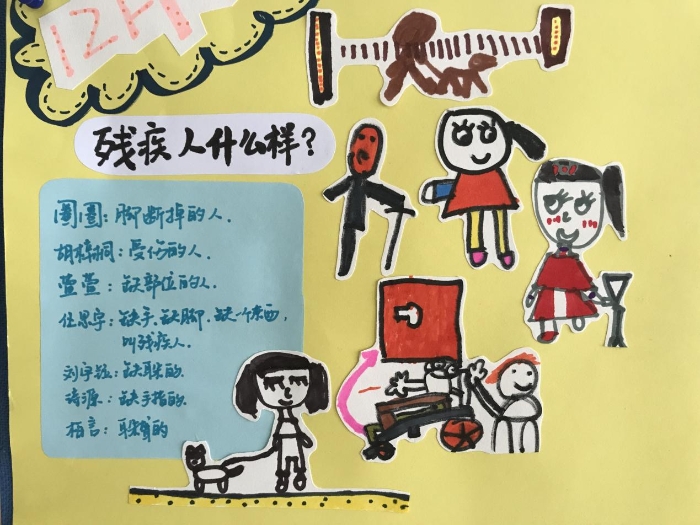 12月
残疾人什么样?
圍圍:脚断掉的人.
胡樟桐:受伤的人.
萱萱:缺部位的人.
任思宇:缺手,缺脚,缺一个东西,
叫残疾人.
刘宇:缺耳朵的
:缺手指的.
柏言:聋的